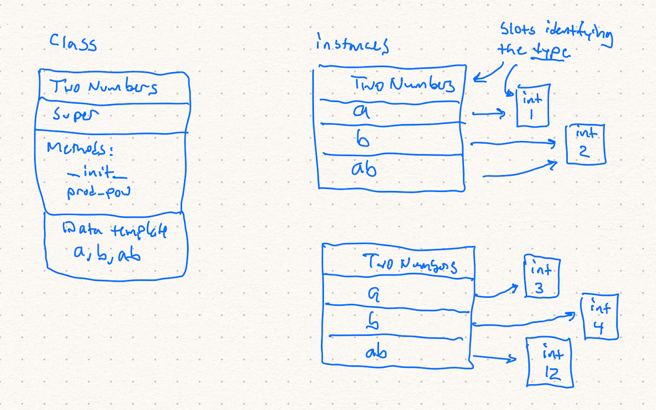 Class
Two Numbers
Super
Methods:
_init_
prod_pow
Data template
a, b, ab
instances
Slots identifying
the type
Two Numbers
a
b
ab
int
1
int
2
Two Numbers
a
b
ab
int
3
int
4
int
12